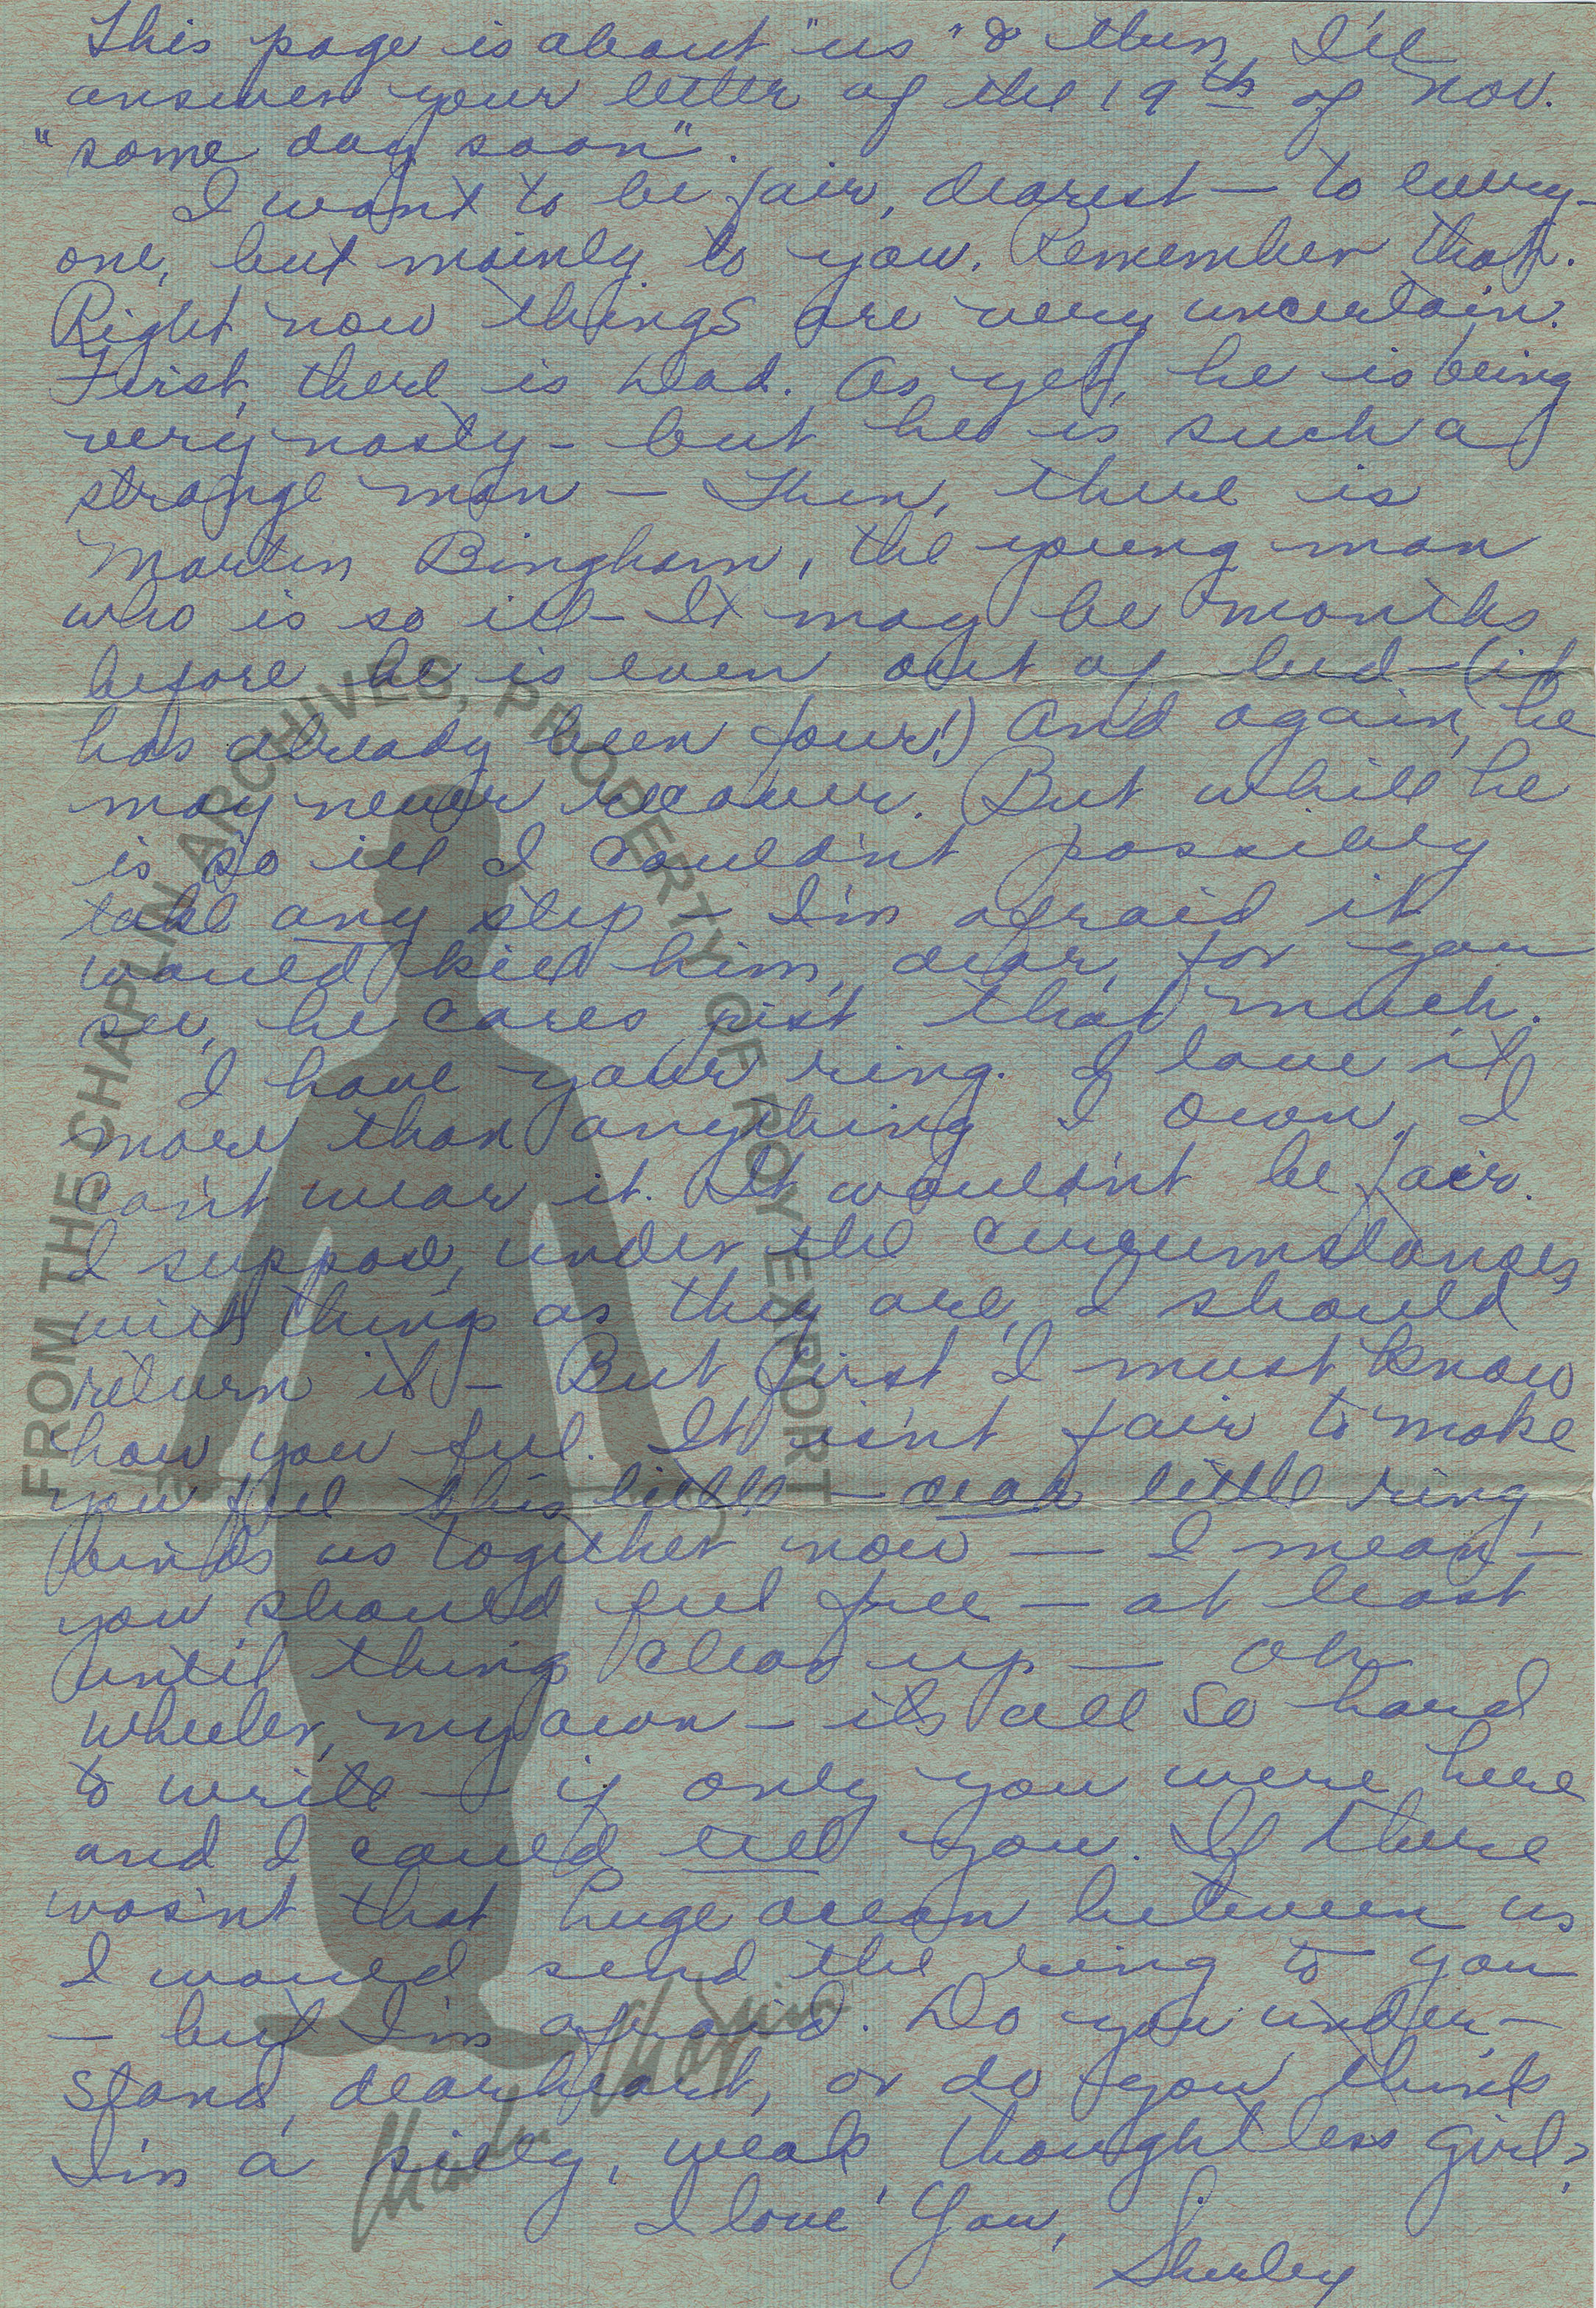 This page is about "us" & then I'll
answer your letter of the 19th of Nov.
"some day soon".
I want to be fair, dearest — to every-
one, but mainly to you. Remember that.
Right now things are very uncertain.
First, there is Dad. As yet, he is being
very nasty — but he is such a
strange man — Then, there is
Martin Bingham, the young man
who is so ill — It may be months
before he is even out of bed — (it
has already been four!) And again, he
may never recover. But while he
is so ill I couldn't possibly
take any step — I'm afraid it
would kill him, dear, for you
see, he cares just that much.
I have your ring. I love it
more than anything I own. I
can't wear it. It wouldn't be fair.
I suppose, under the circumstances,
with things as they are, I should
return it — But first I must know
how you feel. It isn't fair to make
you feel this little — dear little ring,
binds us together now — I mean —
you should feel free — at least
until things clear up — oh
Wheeler, my own — it's all so hard
to write — if only you were here
and I could tell you. If there
wasn't that huge ocean between us
I would send the ring to you
— but I'm afraid. Do you under-
stand, dearheart, or do you think
I'm a silly, weak, thoughtless girl?
I love you,
Shirley
FROM THE CHAPLIN ARCHIVES, PROPERTY OF ROY EXPORT
Charlie Chaplin